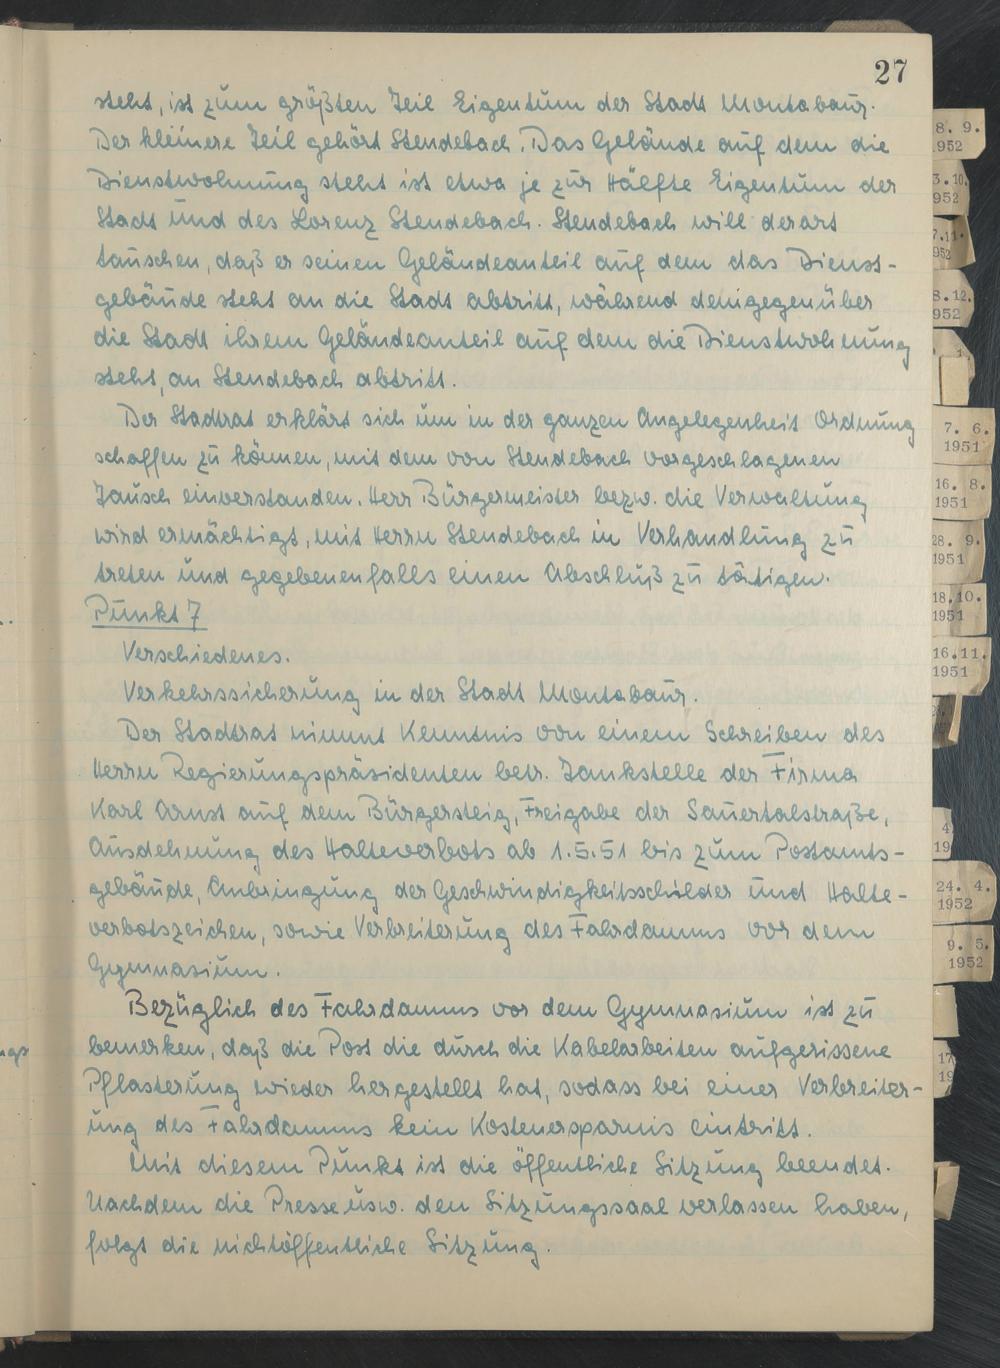 27
steht, ist zum größten Teil Eigentum der Stadt Montabaur.
Der kleinere Teil gehört Stendebach. Das Gelände auf dem die
Dienstwohnung steht ist etwa je zur Hälfte Eigentum der
Stadt und des Lorenz Stendebach. Stendebach will derart
tauschen, daß er seinen Geländeanteil auf dem das Dienst-
gebäude steht an die Stadt abtritt, während demgegenüber
die Stadt ihrem Geländeanteil auf dem die Dienstwohnung
steht, an Stendebach abtritt.
Der Stadtrat erklärt sich um in der ganzen Angelegenheit Ordnung
schaffen zu können, mit dem von Stendebach vorgeschlagenen
Tausch einverstanden. Herr Bürgermeister bezw. die Verwaltung
wird ermächtigt, mit Herrn Stendebach in Verhandlung zu
treten und gegebenenfalls einen Abschluß zu tätigen.
Punkt 7
Verschiedenes.
Verkehrssicherung in der Stadt Montabaur.
Der Stadtrat nimmt Kenntnis von einem Schreiben des
Herrn Regierungspräsidenten betr. Tankstelle der Firma
Karl Arnst auf dem Bürgersteig, Freigabe der Sauertalstraße,
Ausdehnung des Halteverbots ab 1.5.51 bis zum Postamts-
gebäude, Anbringung der Geschwindigkeitsschilder und Halte-
verbotszeichen, sowie Verbreiterung des Fahrdamms vor dem
Gymnasium.
Bezüglich des Fahrdamms vor dem Gymnasium ist zu
bemerken, daß die Post die durch die Kabelarbeiten aufgerissene
Pflasterung wieder hergestellt hat, sodass bei einer Verbreiter-
ung des Fahrdamms kein Kostenersparnis eintritt.
Mit diesem Punkt ist die öffentliche Sitzung beendet.
Nachdem die Presse usw. den Sitzungssaal verlassen haben,
folgt die nichtöffentliche Sitzung.
8. 9.
952
3.10.
952
7.11.
952
8.12.
952
7. 6.
1951
16. 8.
1951
28. 9.
1951
18.10.
1951
16.11.
1951
4
19
24. 4.
1952
9. 5.
1952
17
19